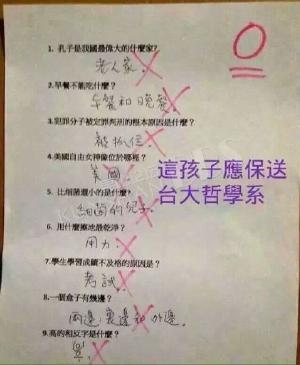 0
1. 孔子是我國最偉大的什麼家?
老人家.
2.早餐不能吃什麼?
午餐和晚餐.
3.犯罪分子被定罪判刑的根本原因是什麼?
被抓住.
4.美國自由女神像位於哪裡?
美國.
5. 比細菌還小的是什麼?
細菌的兒子.
6. 用什麼擦地最乾淨?
用力.
7.學生學習成績不及格的原因是?
考試.
8.一個盒子有幾邊?
兩邊,裏边和外邊.
9.高的相反字是什麼?
這孩子應保送
台大哲學系